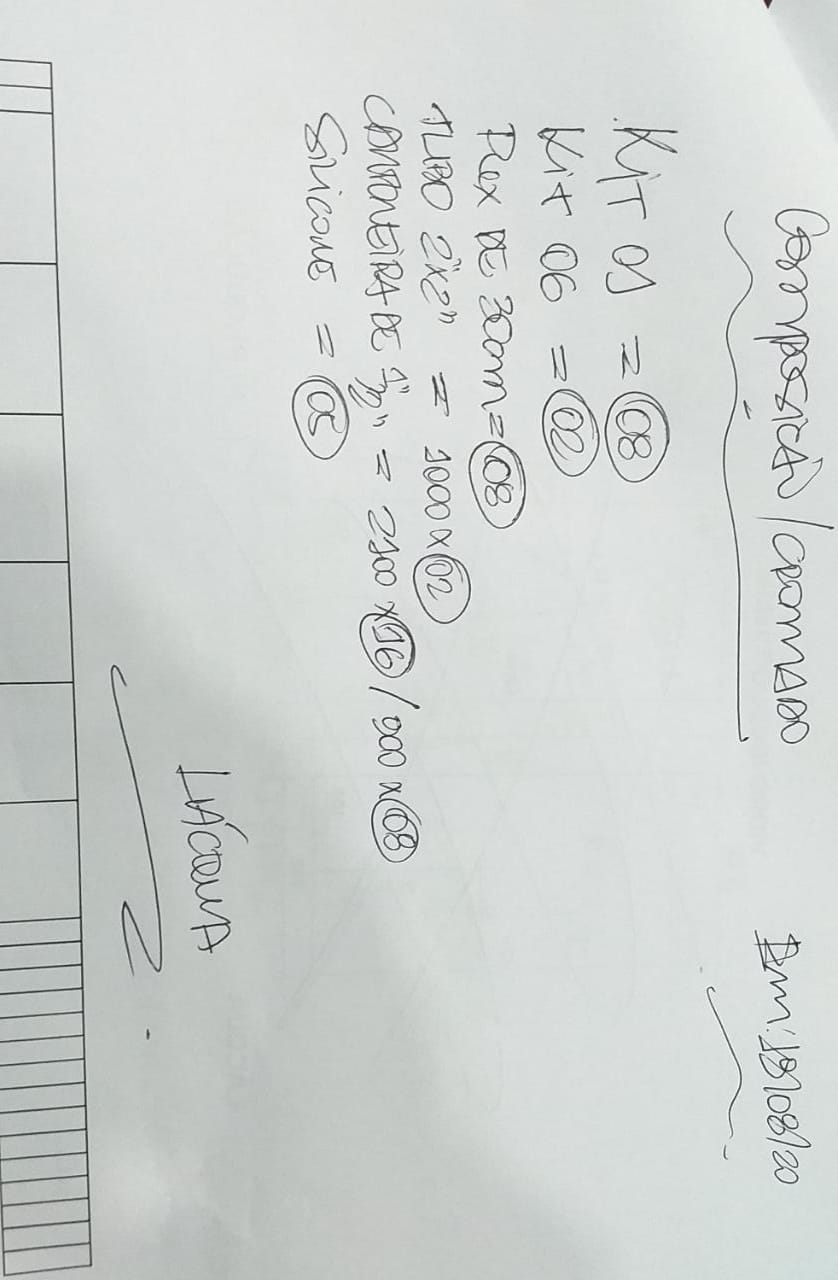 Composição / cromado Em: 18/08/20
Kit 01 = 08
Kit 06 = 02
Pux DE 30cm = 08
TUBO 2"x2" = 3000 x 02
CANTONEIRA DE 1/2" = 2100 x 16 / 900 x 08
SILICONE = 05